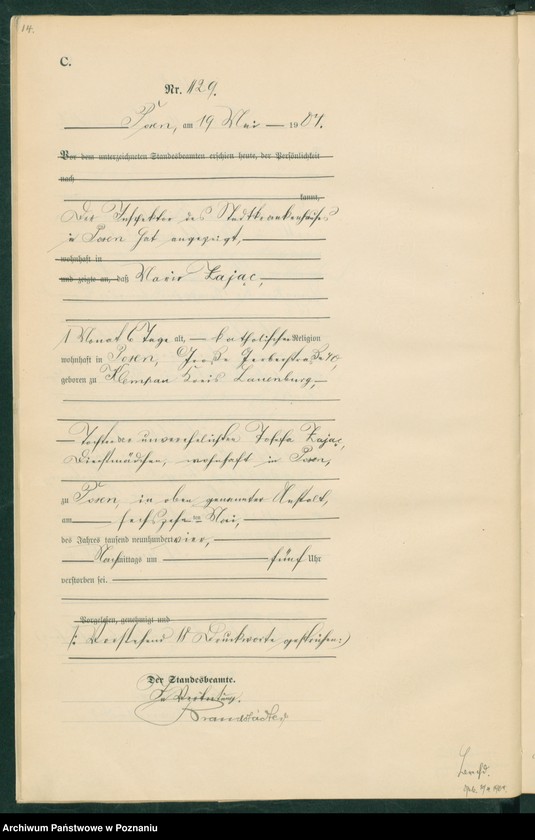 14.
C.
Nr. 1129.
Posen, am 19 Mai 1904.
Vor dem unterzeichneten Standesbeamten erschien heute, der Persönlichkeit
nach
kannt,
Der Inspektor des Stadtkrankenhauses
in Posen hat angezeigt,
wohnhaft in
und zeigte an, daß Maria Zając,
1 Monat 6 Tage alt, katholischer Religion
wohnhaft in Posen, Große Gerberstraße
geboren zu Kreis Lauenburg,
Tochter der unverehelichten Josefa Zając,
Dienstmädchen, wohnhaft in Posen,
zu Posen, in oben genannter Anstalt,
am sechszehnten Mai,
des Jahres tausend neunhundert vier,
Nachmittags um fünf Uhr
verstorben sei.
Vorgelesen, genehmigt und
/: Vorstehend Druckworte gestrichen :/
Der Standesbeamte.
In Vertretung.
Brandstädter
Archiwum Państwowe w Poznaniu